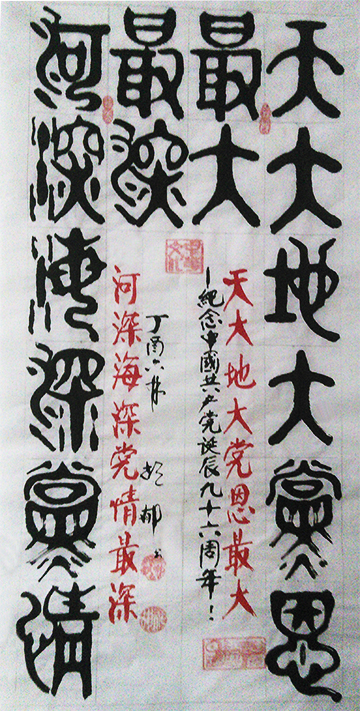 天大地大黨恩
最大
最深
河深海深黨情
天大地大党恩最大
—紀念中國共产党诞辰九十六周年！
河深海深党情最深
丁酉六月